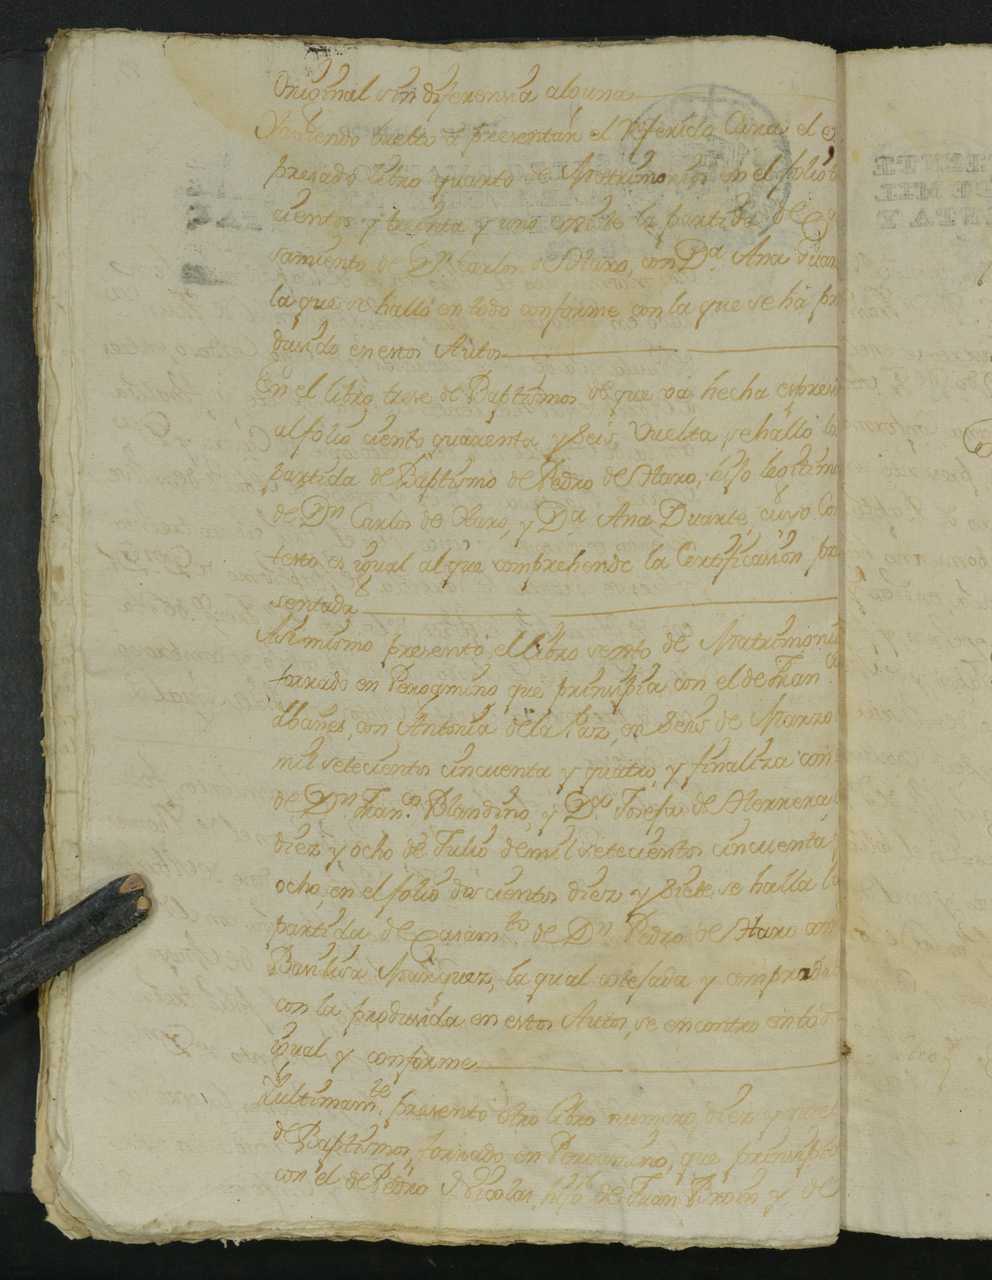 Original sin diferensia alguna
Haviendo buelto à presentar el referido Cura el ex
presado libro quarto de Matrimonios en el folio
cientos y treinta y uno existe la partida de Ca
samiento de Dn Carlos de Haro, con Da. Ana Duar
la que se halló en todo conforme con la que se há pro
dusido en estos Autos
En el libro trese de Baptismos de que va hecha espresi
al folio ciento quarenta y Seis Vuelta se halló la
partida de Baptismo de Pedro de Haro, hijo legitimo
de Dn Carlos de Haro, y Da. Ana Duarte, cuyo Con
testo es igual al que comprehende la Certificasion pre
sentada
Asimismo presento el libro sexto de Matrimonios
forrado en Pergamino que prinsipia con el de Fran.co
Ibañes, con Antonia de la Paz, en Seis de Marzo
mil setecientos cincuenta y quatro, y finaliza con
de Dn Fran.co Blandino, y Da. Josefa de Herrera
diez y ocho de Julio de mil setecientos cincuenta y
ocho, en el folio dos cientos diez y Siete se halla la
partida de Casam.to de Dn Pedro de Haro con
Bautisa Marquez, la qual cotejada y comprovada
con la produsida en estos Autos, se encontro en todo
igual y conforme
Y ultimam.te presento otro libro numero diez y
de Baptismos, forrado en Pergamino, que prinsipia
con el de Pedro Nicolas, hijo de Juan y de